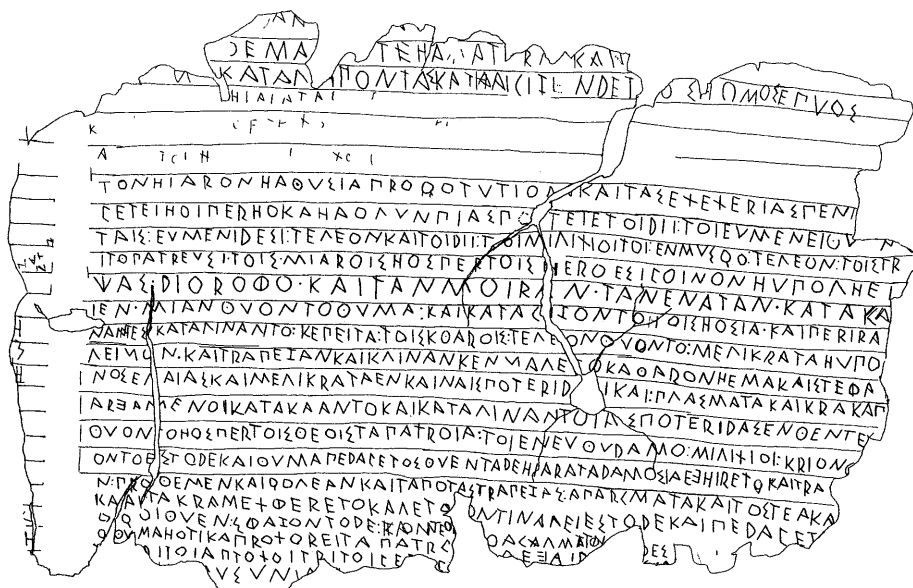 ΑΝ
ΔΕΜΑ ΤΕΗΑ ΑΤ ΡΑΚΑΠ
ΚΑΤΑΛ ΙΠΟΝΤΑΣΚΑΤΗΑΙϹΙΙΕΝΔΕΤ ΟΣΗΟΜΟΣΕΠΥΟΣ
ΗΙΑΙΑΤΑΙ
Κ
Α
ΤΟΝΗΙΑΡΟΝΗΑΘΥΣΙΑΠΡΟϘΟΤΥΤΙΟΝΚΑΙΤΑΣΕ+Ε+ΕΡΙΑΣΠΕΝ
ϜΕΤΕΙΗΟΙΠΕΡΗΟΚΑΗΑΟΛΥΝΠΙΑΣΠΟΤΕΙΕΤΟΙΔΙ:ΤΟΙΕΥΜΕΝΕΙΘΥ Ν
ΤΑΙΣ:ΕΥΜΕΝΙΔΕΣΙ:ΤΕΛΕΟΝΚΑΙΤΟΙΔΙ:ΤΟΙΜΙΛΙ+ΙΟΙΤΟΙ:ΕΝΜΥΣϘΟ:ΤΕΛΕΟΝ:ΤΟΙΣΤΡ
ΙΤΟΠΑΤΡΕΥΣΙ:ΤΟΙΣ:ΜΙΑΡΟΙΣΗΟΣΠΕΡΤΟΙΣΗΕΡΟΕΣΙϜΟΙΝΟΝΗΥΠΟΛΗΕ
ΨΑΣ:ΔΙΟΡΟΦΟ·ΚΑΙΤΑΝΜΟΙΡΑΝ·ΤΑΝΕΝΑΤΑΝ·ΚΑΤΑΚΑ
ΙΕΝ·ΜΙΑΝΘΥΟΝΤΟΘΥΜΑ:ΚΑΙΚΑΤΑϹΙΙΟΝΤΟΗΟΙΣΗΟΣΙΑ·ΚΑΙΠΕΡΙΡΑ
ΝΑΝΤΕΣΚΑΤΑΛΙΝΑΝΤΟ:ΚΕΠΕΙΤΑ:ΤΟΙΣΚΟΑΡΟΙΣ:ΤΕΛΕΟΝΘΥΟΝΤΟ:ΜΕΛΙΚΡΑΤΑΗΥΠΟ
ΛΕΙΜΟΝ·ΚΑΙΤΡΑΠΕΙΑΝΚΑΙΚΛΙΝΑΝΚΕΝΜΑΛΕΤΟΚΑΘΑΡΟΝΗΕΜΑΚΑΙΣΤΕΦΑ
ΙΝΟΣΕΛΑΙΑΣΚΑΙΜΕΛΙΚΡΑΤΑΕΝΚΑΙΝΑΙΣΠΟΤΕΡΙΔΕΣΙΚΑΙ:ΠΛΑΣΜΑΤΑΚΑΙΚΡΑΚΑΠ
ΙΑΡΞΑΜΕΝΟΙΚΑΤΑΚΑΑΝΤΟΚΑΙΚΑΤΑΛΙΝΑΝΤΟΤΑΣΠΟΤΕΡΙΔΑΣΕΝΘΕΝΤΕ
ΙΘΥΟΝΤΟΗΟΣΠΕΡΤΟΙΣΘΕΟΙΣΤΑΠΑΤΡΟΙΑ:ΤΟΙΕΝΕΥΘΥΔΑΜΟ:ΜΙΛΙ+ΙΟΙ:ΚΡΙΟΝ
ΟΝΤΟΕΣΤΟΔΕΚΑΙΘΥΜΑΠΕΔΑϜΕΤΟΣΘΥΕΝΤΑΔΕΗΙΑΡΑΤΑΔΑΜΟΣΙΑΕΞΗΙΡΕΤΟΚΑΙΤΡΑ
Ν:ΠΡΟΘΕΜΕΝΚΑΙϘΟΛΕΑΝΚΑΙΤΑΠΟΤΑΣΤΡΑΠΕΙΑΣ:ΑΠΑΡϹΜΑΤΑΚΑΙΤΟΣΤΕΑΚΑ
ΚΑΑΝΤΑΚΡΑΜΕ+ΦΕΡΕΤΟΚΑΛΕΤΟ ΟΝΤΙΝΑΛΕΙΕΣΤΟΔΕΚΑΙΠΕΔΑϜΕΤ
ΟΙΘΥΕΝ:ΣΦΑΙΟΝΤΟΔΕ: ΟΑϹΑΛΜΑΤΟ ΔΕΣ
ΟΘΥΜΑΗΟΤΙΚΑΠΡΟ+ΟΡΕΙΤΑΠΑΤΡΟ ΕΞΑΙ
ΙΤΟΙΑΠΤΟ+ΟΙΤΡΙΤΟΙϜΕ
ΥΣΥΝ